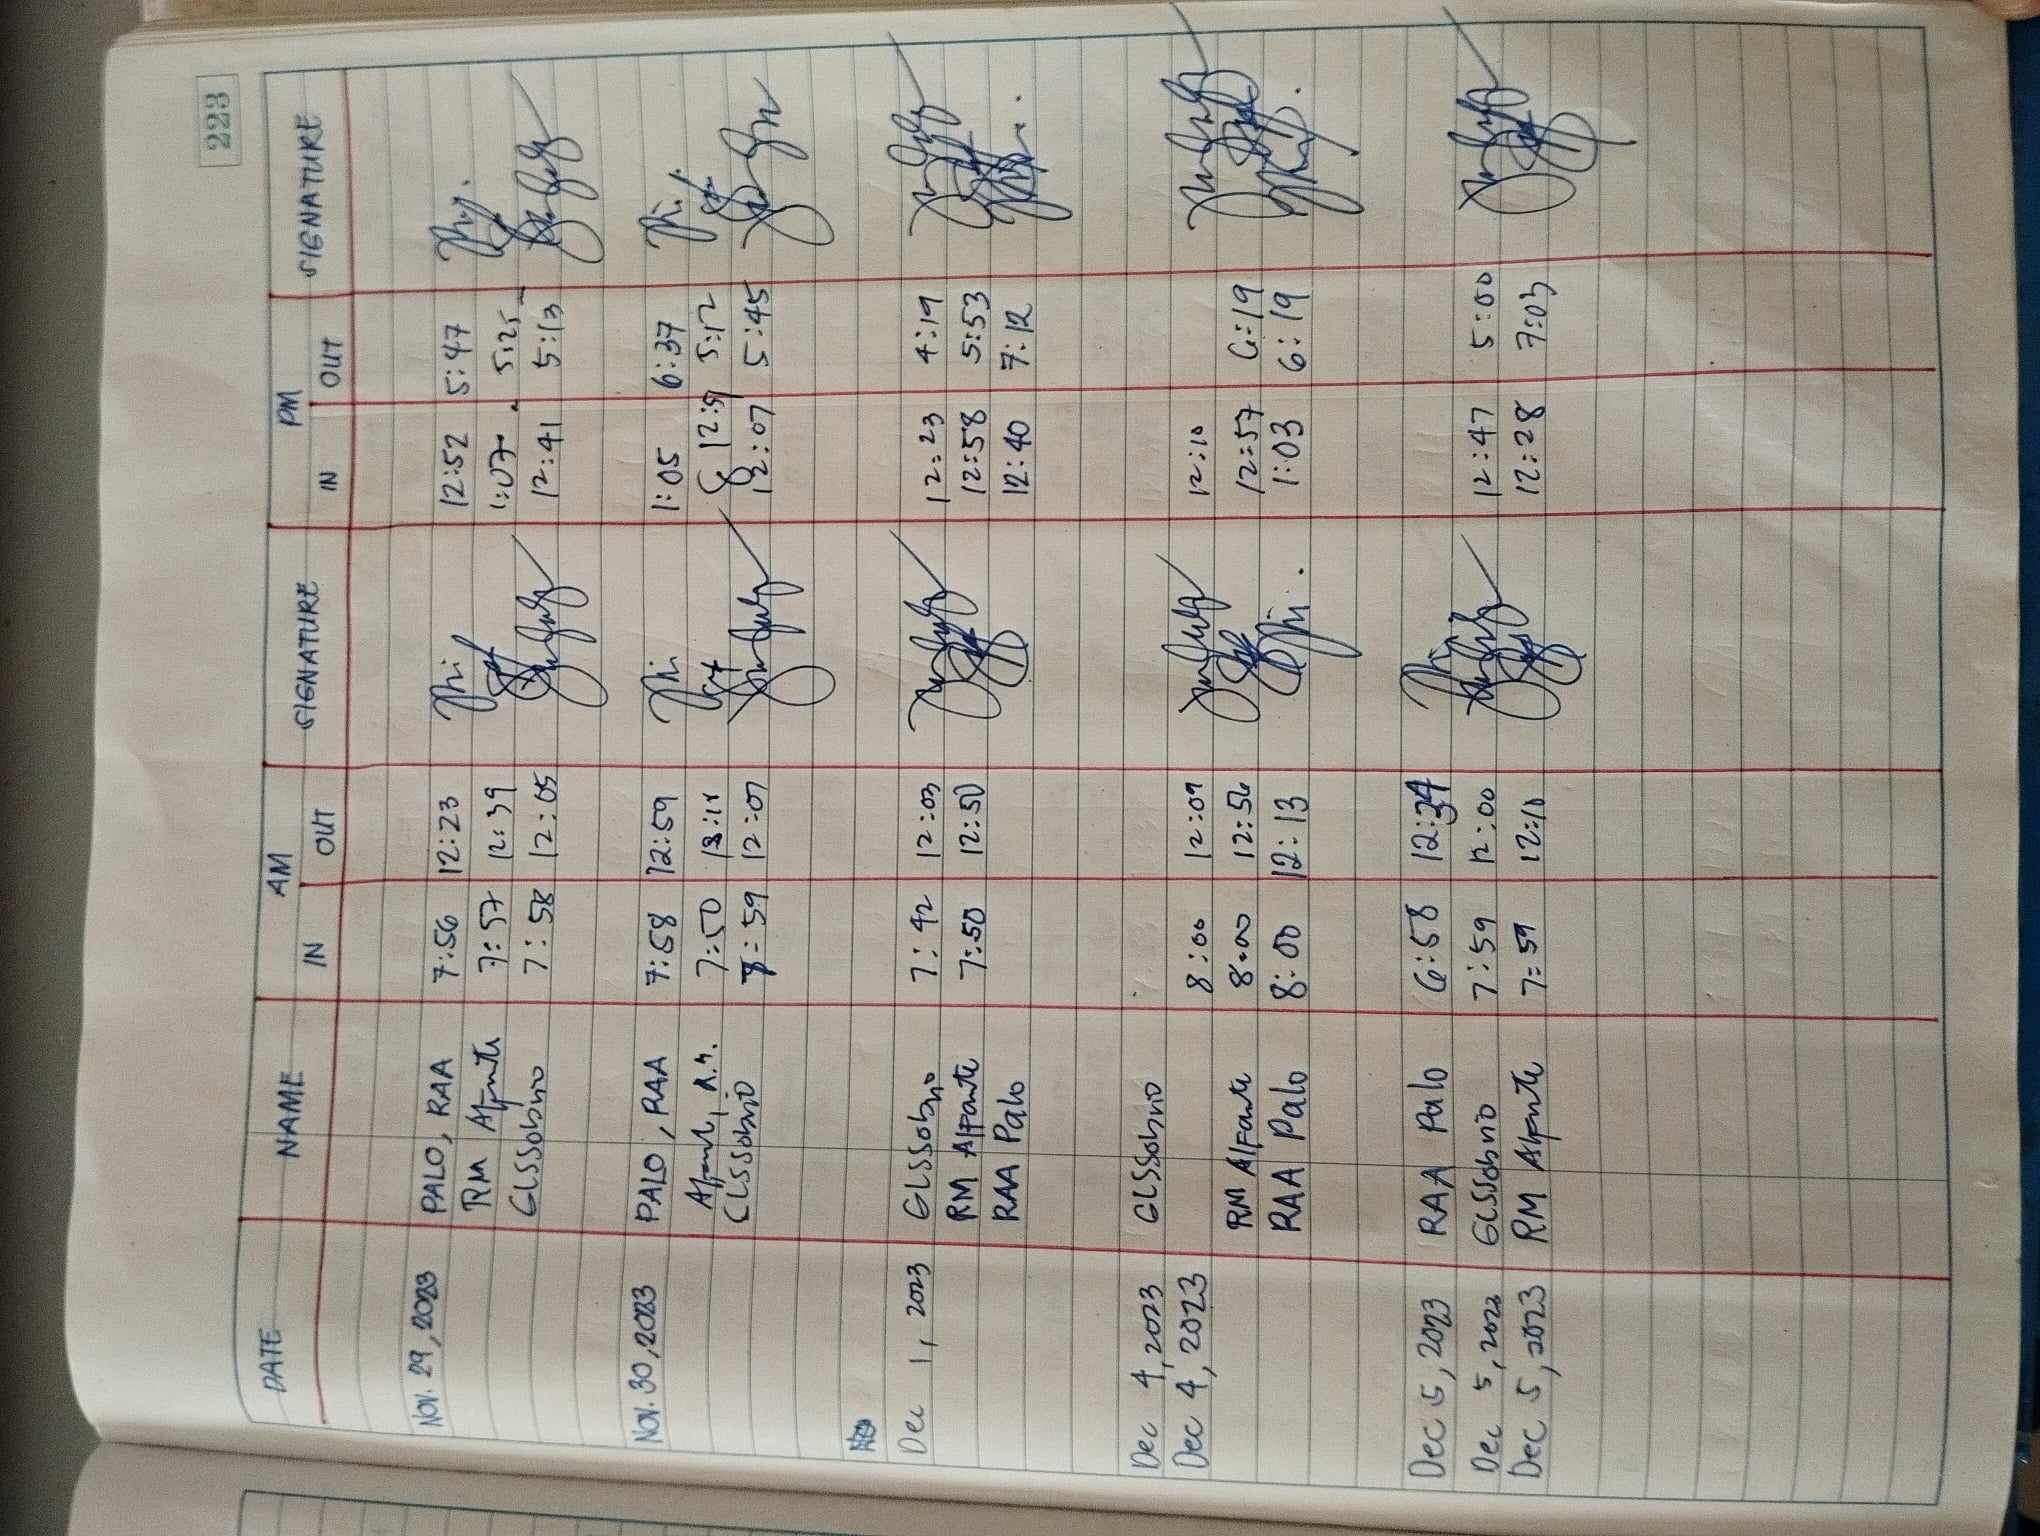 223
DATE NAME AM SIGNATURE PM SIGNATURE
IN OUT IN OUT
NOV. 29, 2023 PALO, RAA 7:56 12:23 12:52 5:47
RM Alfante 7:57 12:39 1:07 5:25
GLSSobrio 7:58 12:05 12:41 5:13
NOV. 30, 2023 PALO, RAA 7:58 12:59 1:05 6:37
Alfante, R.M. 7:50 5:12
GLSSobrio 12:07 12:07 5:45
Dec 1, 2023 GLSSobrio 7:42 12:03 12:23 4:19
RM Alfante 7:50 12:50 12:58 5:53
RAA Palo 12:40 7:12
Dec 4, 2023 GLSSobrio
Dec 4, 2023 8:00 12:09 12:10
RM Alfante 8:00 12:56 12:57 6:19
RAA Palo 8:00 12:13 1:03 6:19
Dec 5, 2023 RAA Palo 6:58
Dec 5, 2023 GLSSobrio 7:59 12:00 12:47 5:00
Dec 5, 2023 RM Alfante 7:59 12:10 12:28 7:03